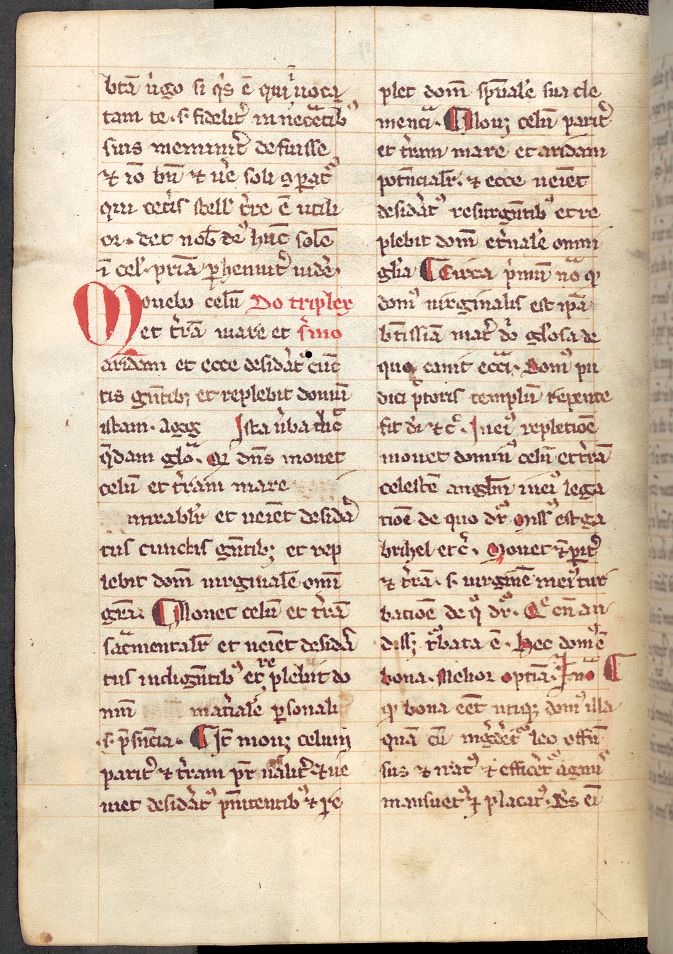 btā ůgo si q̇s ē qui īuoca
tam te · s̄ fidelit̄ in necc̄itib⁹
suis meminit̄ defuisse
⁊ iō bn̄ ⁊ ůe soli ꝯparat⁹
qui cet̄is stell' t̄re ē utili
or · det nob̄ de⁹ hūc solē
ī cel' pria ꝑhenniť uidē ·
Mouebo celū Do triplex
et t̄rā mare et s̄mo
aridam et ecce desidāt cūc
tis gn̄tib; et replebit domū
istam · agḡ Ista ůba dic̄
q̄dam glo · Q̄ dn̄s mouet
celū et t̄ram mare
mirabl'r et ueiet desidā
tus cunctis gn̄tib; et rep
lebit dom̄ uirginalē om̄i
gr̄a · ¶ Mouet celū et t̄rā
sac̄mental'r et ueiet desidā
tus indign̄tib⁹ et replebit do
mū mat̄iale ꝑsonali
· s · p̄sn̄cia · ¶ It̄ mou; celum
parit̄ ⁊ t̄ram ꝑt̄ nālit̄ · ⁊ ue
niet desidāt⁹ pn̄itentib⁹ ⁊ re
plet dom̄ spūalē sua cle
mencia · ¶ Mou; celū parit̄
et t̄ram mare et aridam
potn̄cial'r · ⁊ ecce ueiet
desidāt⁹ resurgn̄tib⁹ et re
plebit dom̄ et̄nalē omni
gl'ia ¶ Circa p̄mū nō q̄
dom⁹ uirginalis est ip̄a
bt̄issīa mat̄ dō gl'osa de
quo canit eccā · Dom⁹ pu
dici pc̄toris templū repente
fit di ⁊ c̄ · In ei⁹ repletiōe
mouet domin⁹ celū et t̄rā
celestē angl̄m in ei⁹ lega
tiōe de quo dr̄ · Miss⁹ est ga
brihel et c̄ · Mouet ⁊ parit̄
⁊ t̄rā · s · uirginē in ei⁹ tur
batiōe de q̊ dr̄ · Q̄ cū au
diss; t̄bata ē · Hec dom⁹ ē
bona · Melior · optīa · Primo ¶
q̄ bona eēt utiq; dom⁹ illa
quā cū īgr̄det̄ leo offn̄
sus ⁊ irat⁹ ⁊ effic̄et̄ agnus
mansuet⁹ ⁊ placat⁹ · D's ei